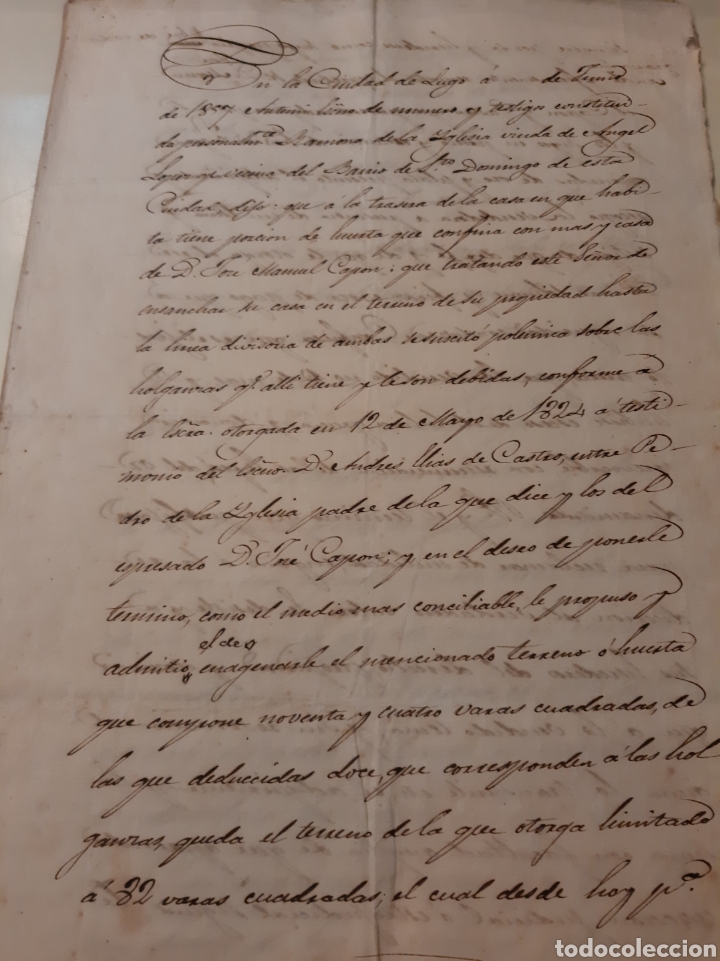 En la Ciudad de Lugo á de Junio
de 1857 Antemi Esno de numero y testigos constitui-
da personalmte Ramona de la Yglesia viuda de Angel
Lopez vecina del Barrio de Sto Domingo de esta
Ciudad dijo: que a la trasera de la casa en que habi-
ta tiene porcion de huerta que confina con mas y casa
de D. José Manuel Capon: que tratando este Señor de
ensanchar su casa en el terreno de su propiedad hasta
la linea divisoria de ambas se suscitó polemica sobre las
holganzas qe alli tiene y le son debidas, conforme á
la Escra otorgada en 12 de Mayo de 1824 á testi-
monio del Esno D. Andres Elias de Castro, entre Pe-
dro de la Yglesia padre de la que dice y los del
espresado D. José Capon; y en el deseo de ponerle
termino, como el medio mas conciliable, le propuso y
admitio el de enagenarle el mencionado terreno ó huerta
que compone noventa y cuatro varas cuadradas, de
las que deducidas doce, que corresponden á las hol
ganzas, queda el terreno de la que otorga limitado
á 82 varas cuadradas; el cual desde hoy pa
todocoleccion.net